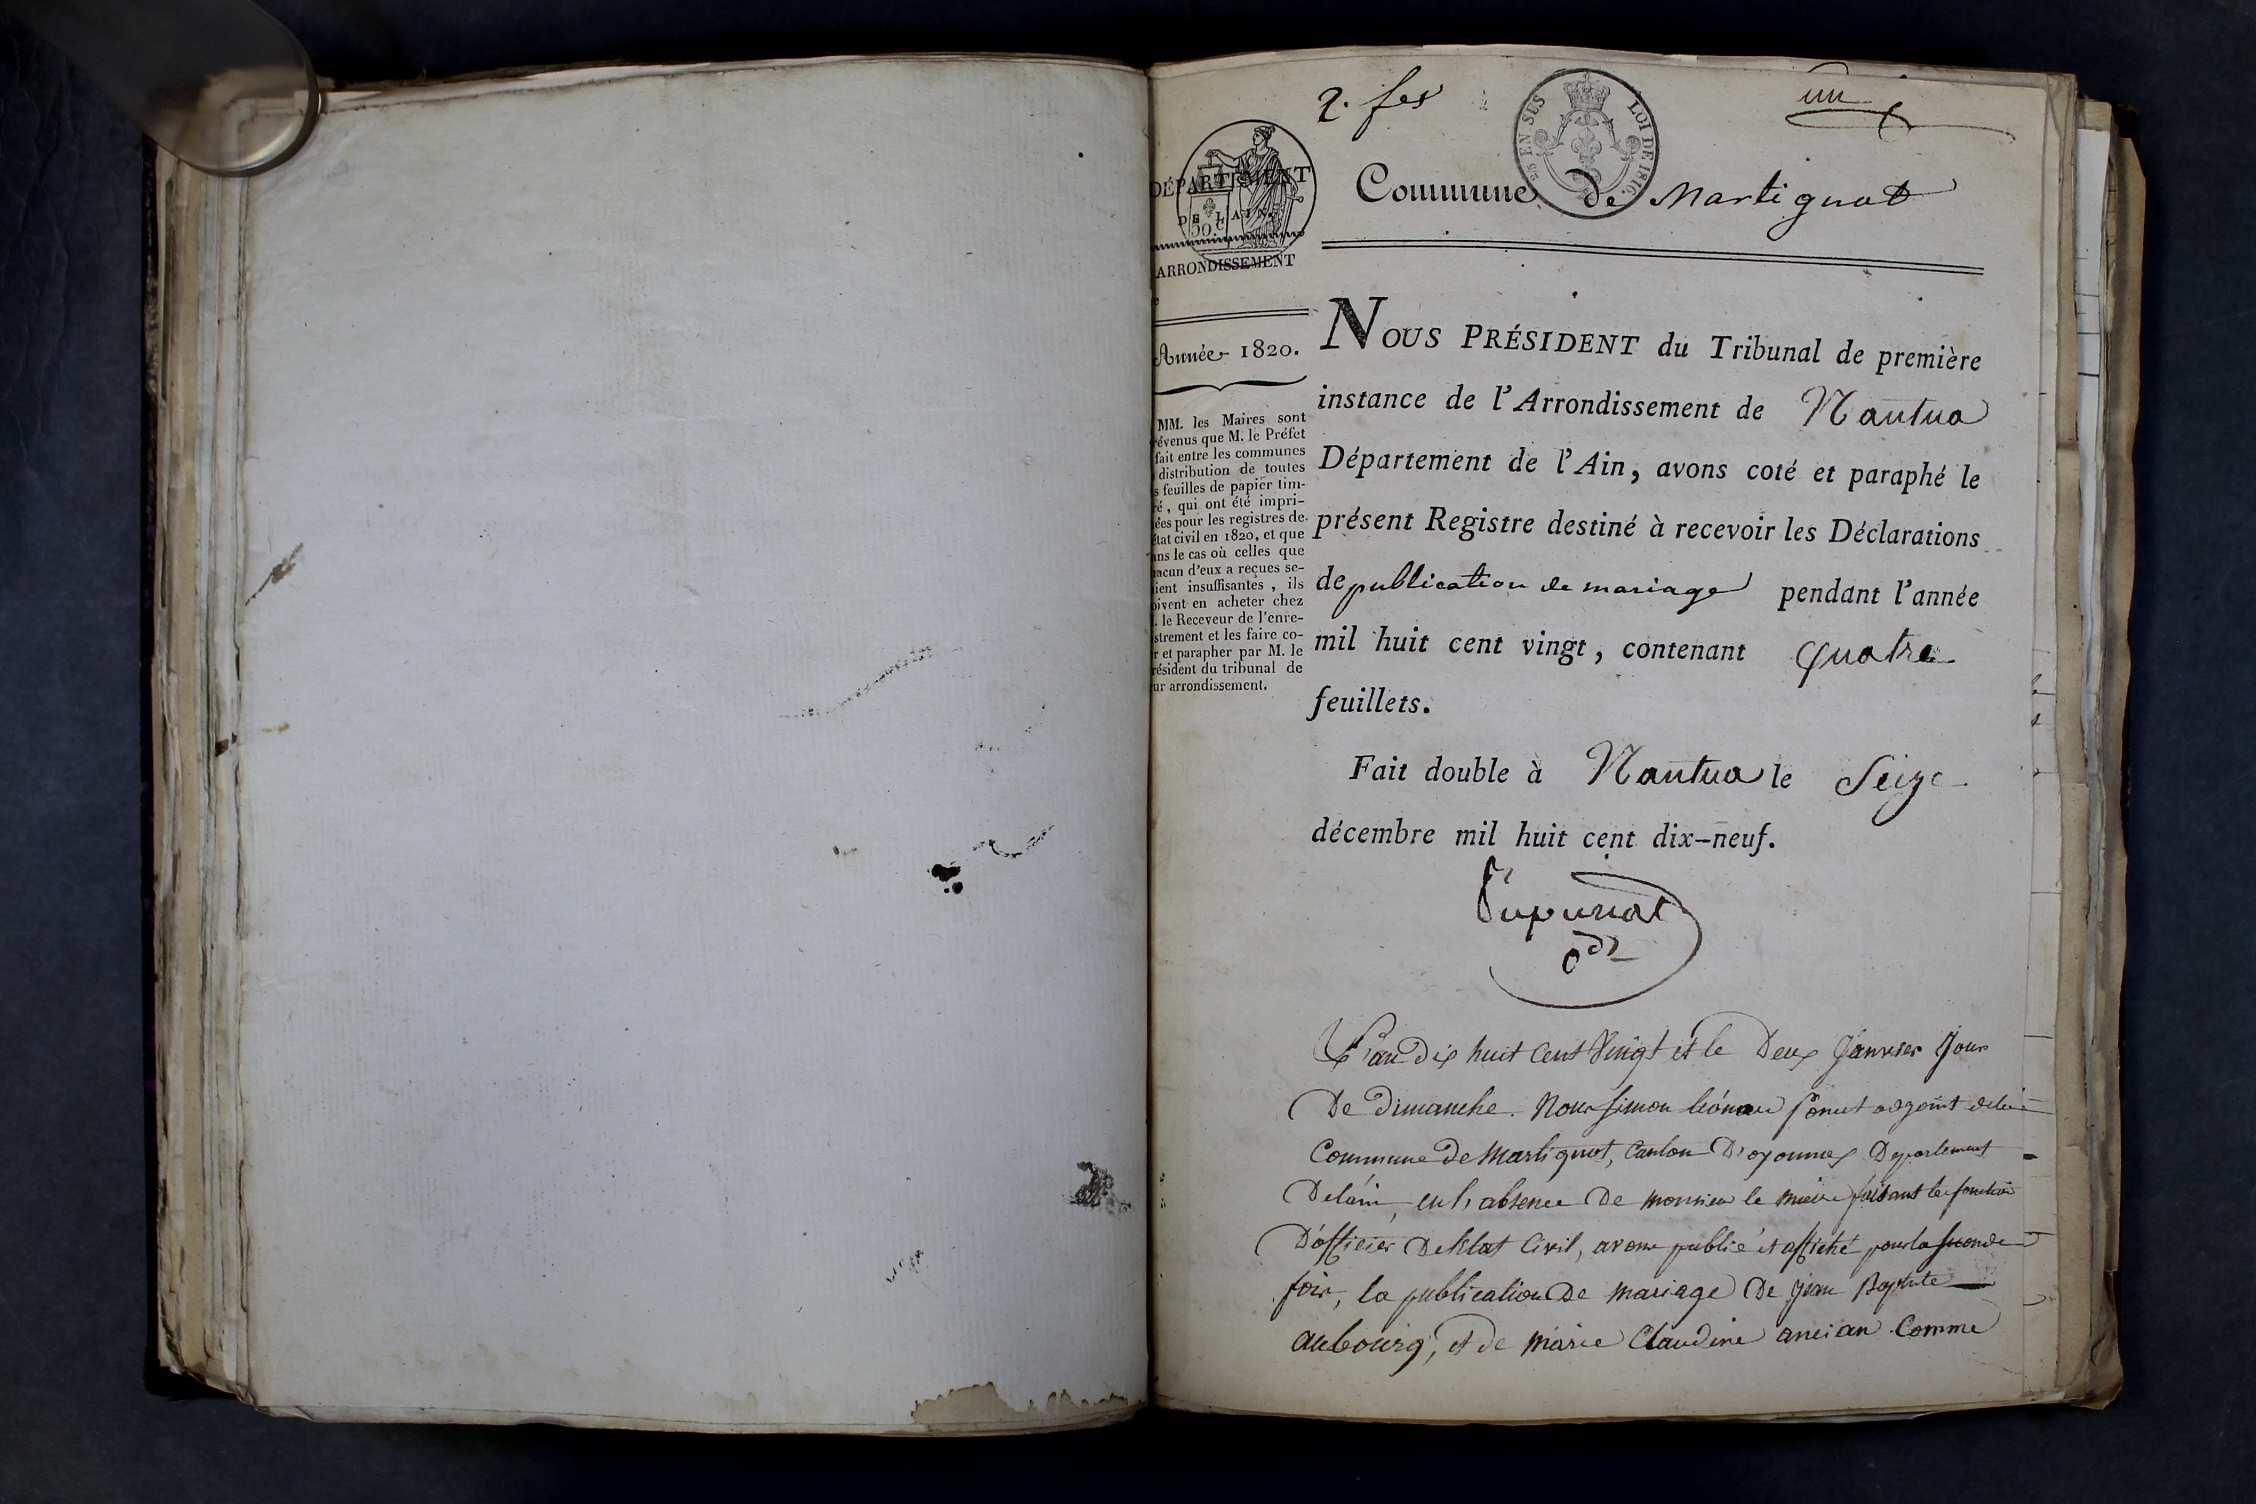 2. fes
un
EN SUS
LOI DE 1816.
DÉPARTEMENT
DE L'AIN.
50.c
ARRONDISSEMENT
Année 1820.
MM. les Maires sont
révenus que M. le Préfet
fait entre les communes
distribution de toutes
s feuilles de papier tim-
ré, qui ont été impri-
ées pour les registres de
état civil en 1820, et que
ans le cas où celles que
hacun d'eux a reçues se-
aient insuffisantes, ils
oivent en acheter chez
. le Receveur de l'enre-
strement et les faire co-
r et parapher par M. le
résident du tribunal de
ur arrondissement.
Commune de Martignat
NOUS PRÉSIDENT du Tribunal de première
instance de l'Arrondissement de Nantua
Département de l'Ain, avons coté et paraphé le
présent Registre destiné à recevoir les Déclarations
de publication de mariage pendant l'année
mil huit cent vingt, contenant quatre
feuillets.
Fait double à Nantua le Seize
décembre mil huit cent dix-neuf.
L'an dix huit Cent Vingt et le Deux Janvier Jour
De dimanche. Nous Simon adgoint dela
Commune de Martignat, Canton D'oyonnax Departement
Delain, en l'absence De monsieur le maire faisant les fonction
D'officier Deletat Civil, avons publié et affiché pour la seconde
fois, la publication De mariage De Jean Baptiste
aubourg, et de marie Claudine ancian Comme